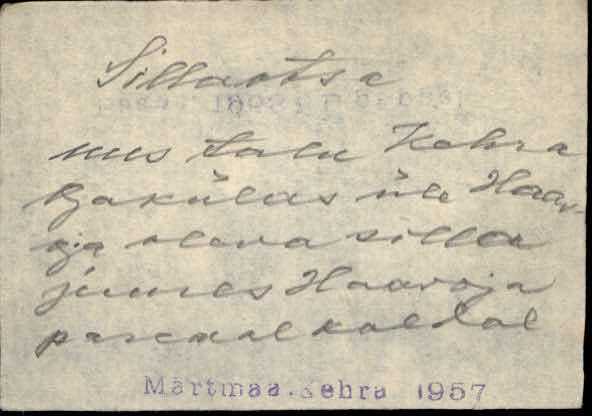 Sillaotsa
uus talu Kehra
külas üle Haav-
oja oleva silla
juures Haavoja
paremal kaldal
Märtmaa.Kehra 1957